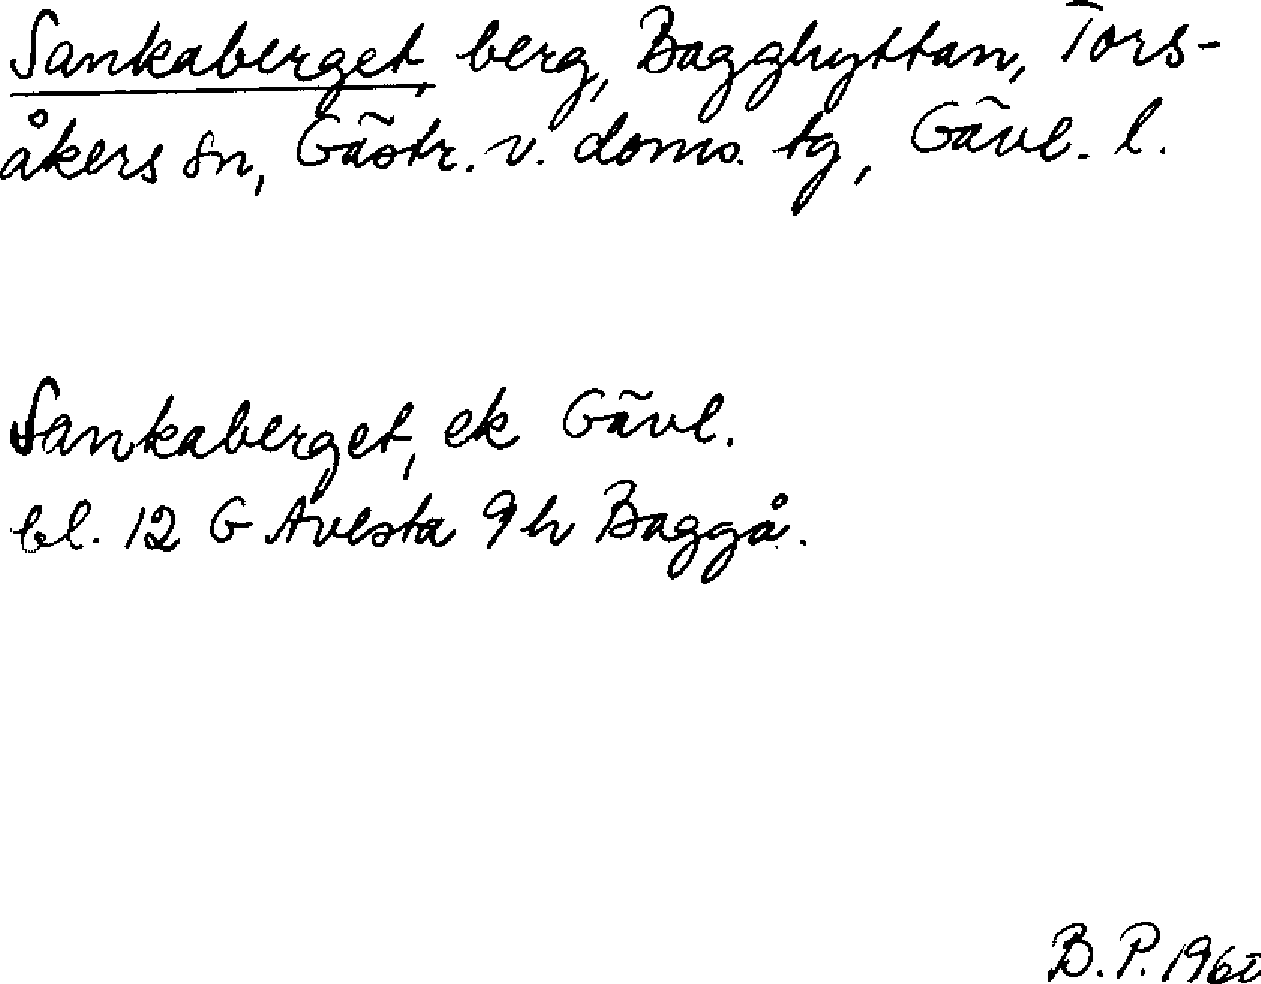 Sankaberget, berg, Bagghyttan, Tors-
åkers sn, Gästr. v. doms. tg, Gävl. l.
Sankaberget, ek Gävl.
bl. 12 G Avesta 9h Baggå.
B. P.